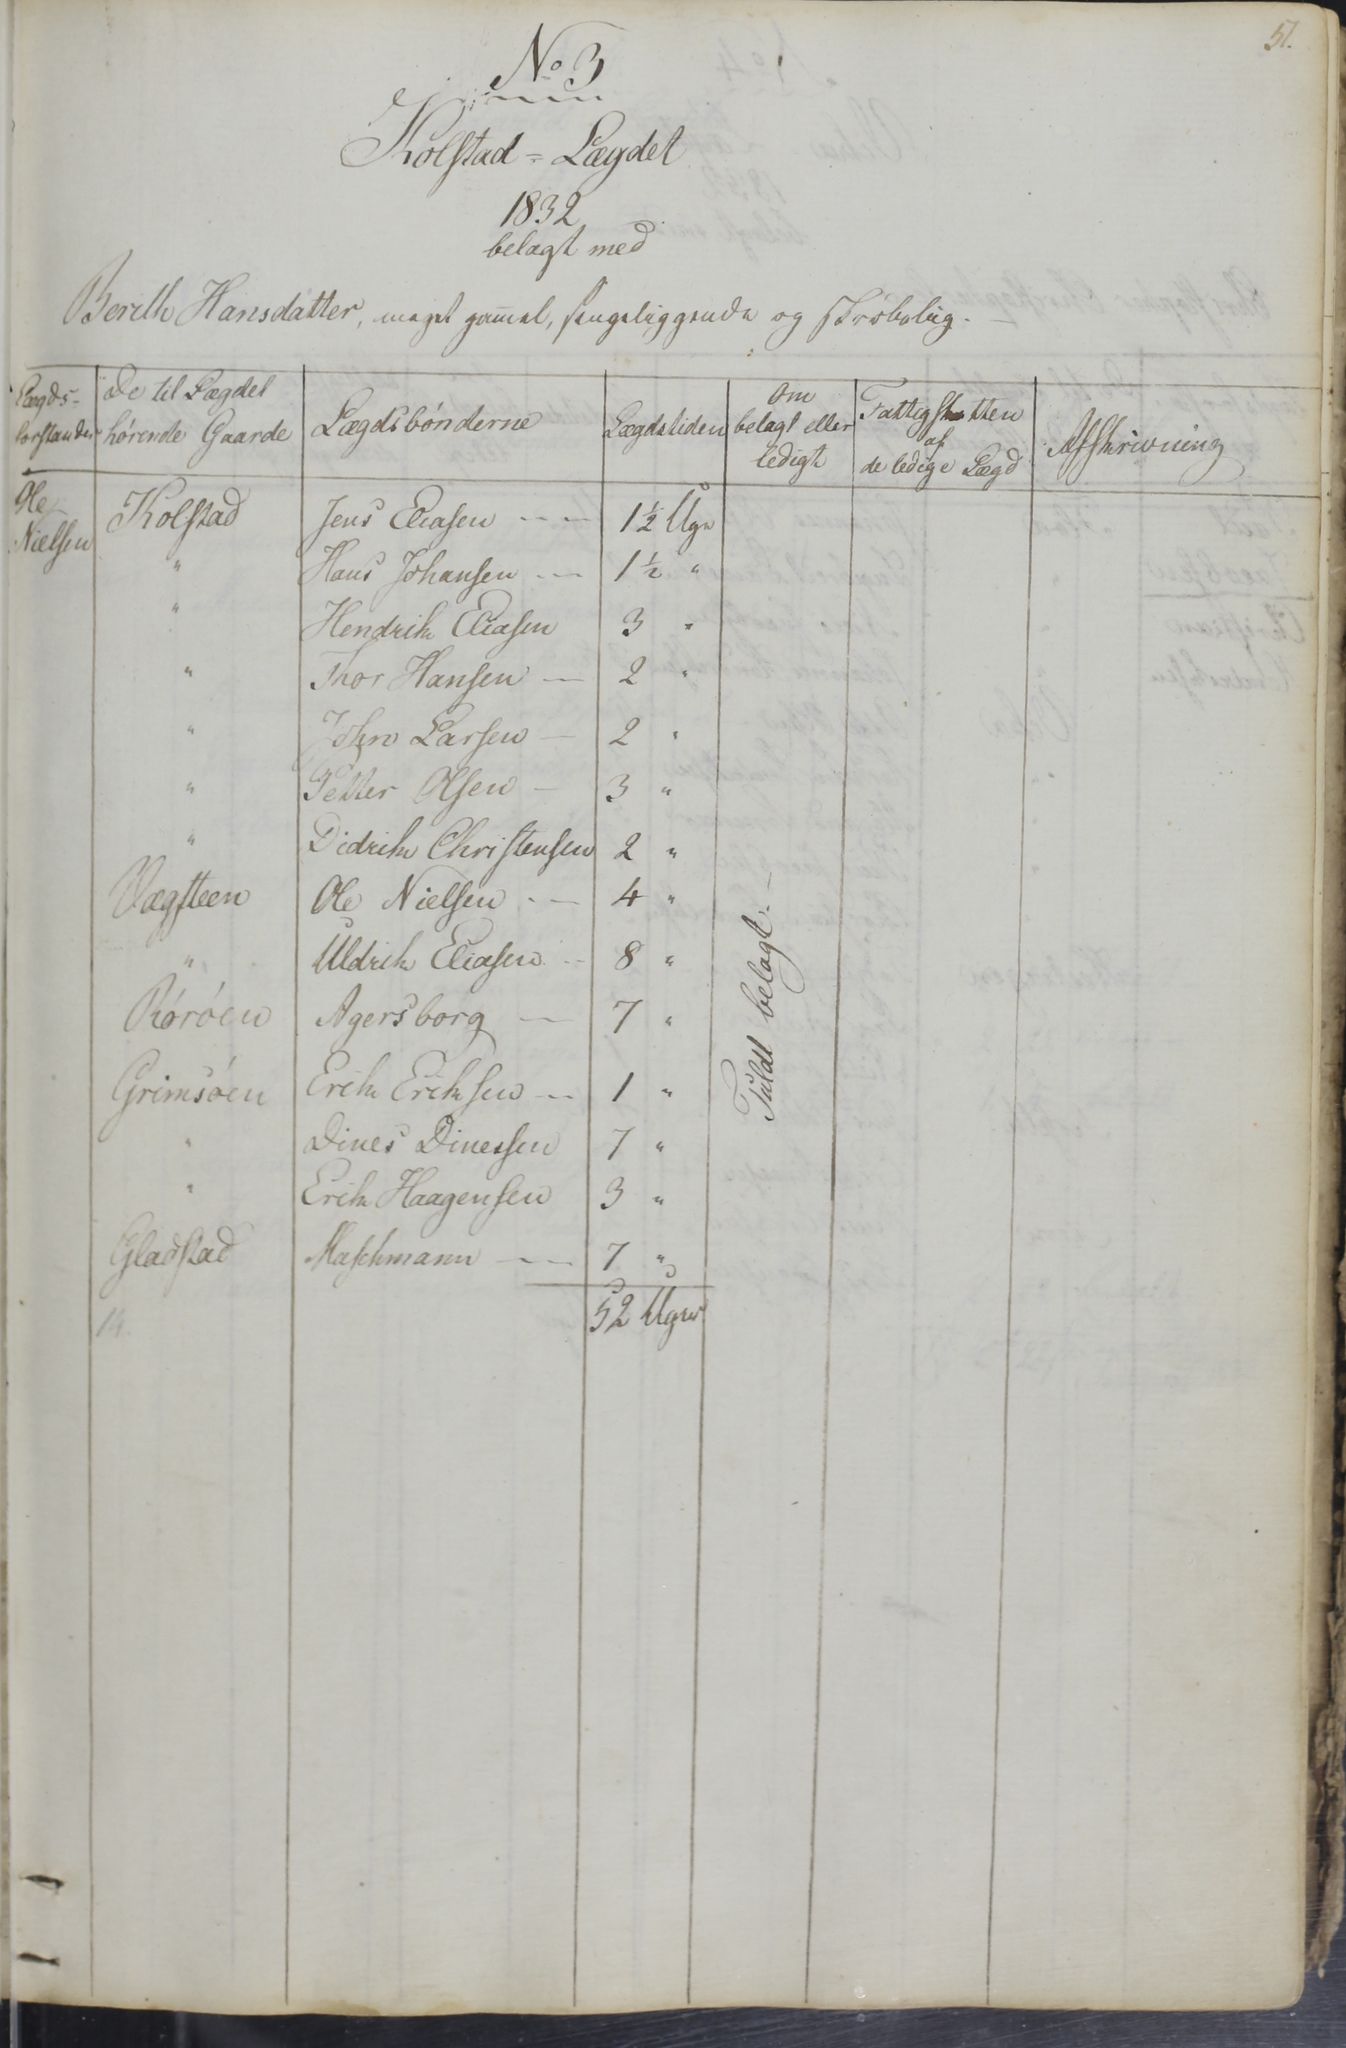 51.
No 3
Kolstad = Lægdet
1832
belagt med
Berith Hansdatter, meget gam̅el, sengeliggende og skrøbelig.
Lægds-forstander | De til Lægdet hørende Gaarde | Lægdsbønderne | Lægdstiden | Om belagt eller ledigt | Fattigskatten af de ledige Lægd | Afskrivning
Ole Nielsen | Kolstad | Jens Eliasen -- | 1 ½ Uger
" | Hans Johansen -- | 1 ½ "
" | Hendrik Eliasen | 3 "
" | Thor Hansen - | 2 "
" | John Larsen - | 2 "
" | Petter Olsen - | 3 "
" | Didrik Christensen | 2 "
Vægsteen | Ole Nielsen -- | 4 "
" | Uldrik Eliasen -- | 8 "
Rørøen | Agersborg - | 7 "
Grimsøen | Erik Eriksen -- | 1 "
" | Dines Dinessen | 7 "
" | Erik Haagensen | 3 "
Gladstad | Maschmann -- | 7 "
14. | 52 Uger
Fuldt belagt. -